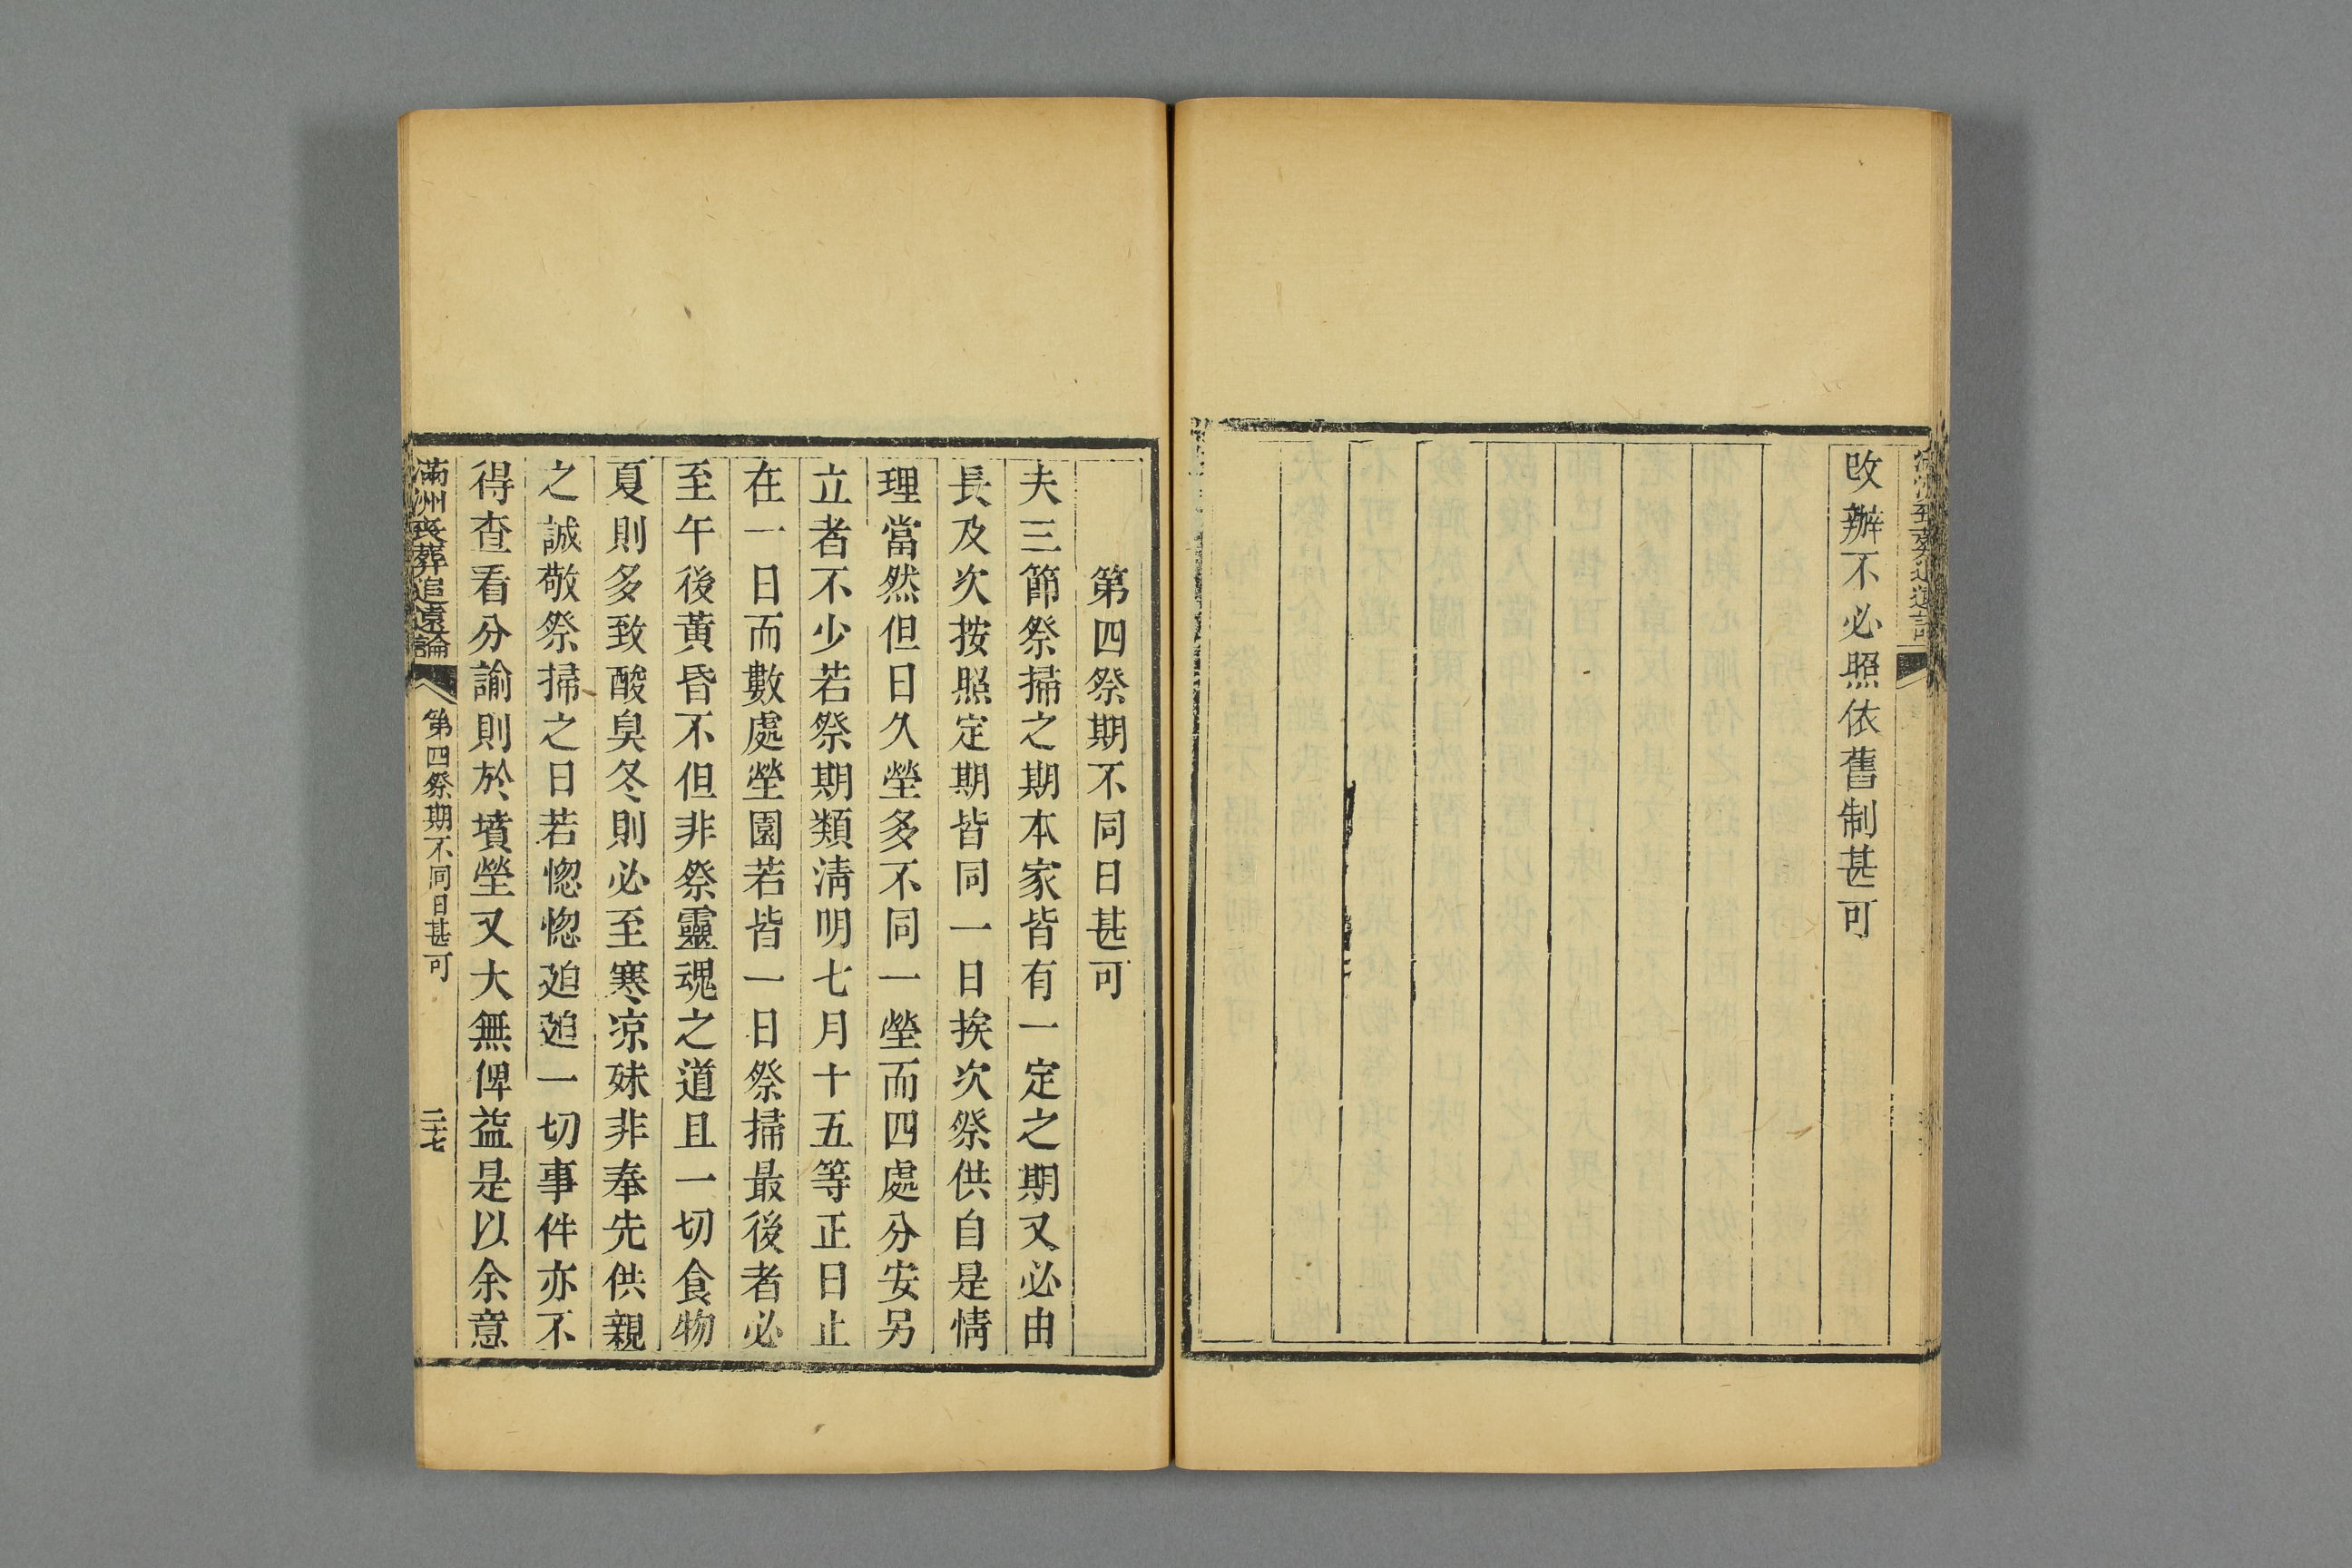 改辦不必照依舊制甚可
第四祭期不同日甚可
夫三節祭掃之期本家皆有一定之期又必由
長及次按照定期皆同一日挨次祭供自是情
理當然但日久塋多不同一塋而四處分安另
立者不少若祭期類淸明七月十五等正日止
在一日而數處塋園若皆一日祭掃最後者必
至午後黃昏不但非祭靈魂之道且一切食物
夏則多致酸臭冬則必至寒凉殊非奉先供親
之誠敬祭掃之日若惚惚廹廹一切事件亦不
得查看分諭則於墳塋又大無俾益是以余意
滿洲喪葬追遠論
第四祭期不同日甚可
二十七